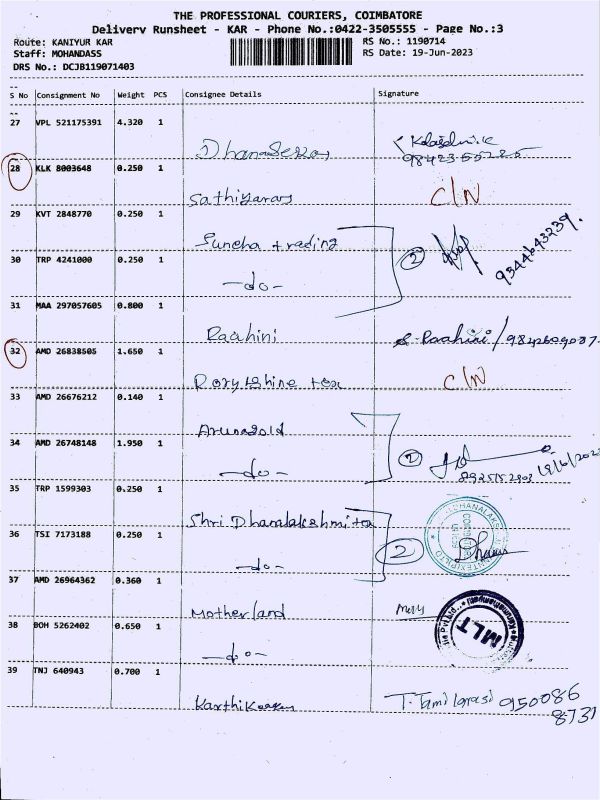 THE PROFESSIONAL COURIERS, COIMBATORE
Delivery Runsheet - KAR - Phone No.:0422-3505555 - Page No.:3
Route: KANIYUR KAR
RS No.: 1190714
Staff: MOHANDASS
RS Date: 19-Jun-2023
DRS No.: DCJB119071403
--
S No Consignment No Weight PCS Consignee Details Signature
--
27 VPL 521175391 4.320 1
98423 55225
28 KLK 8003648 0.250 1
C/N
29 KVT 2848770 0.250 1
Suncha trading
② 9344643239.
30 TRP 4241000 0.250 1
-do-
31 MAA 297057605 0.800 1
Raahini
S. Raahini /
32 AMD 26838505 1.650 1
C/N
33 AMD 26676212 0.140 1
34 AMD 26748148 1.950 1
-do-
②
19/6/202
35 TRP 1599303 0.250 1
Shri Dhanalakshmi tex
36 TSI 7173188 0.250 1
-do-
②
37 AMD 26964362 0.360 1
Motherland
MLT
38 BOH 5262402 0.650 1
-do-
39 TNJ 640943 0.700 1
T. Tamilarasi 950086
8731